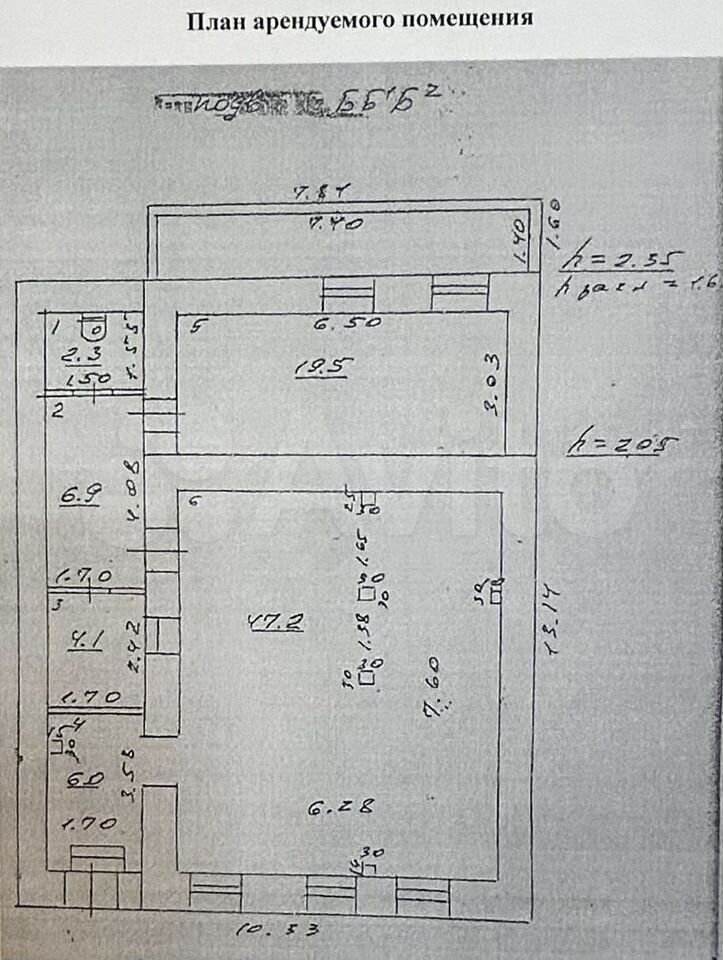 План арендуемого помещения
ББ¹Б²
7.87
7.40
1.40
1.60
h = 2.35
1
2.3
1.50
1.55
5
6.50
19.5
3.03
h = 2.05
2
6.9
4.08
1.70
6
25
50
1.65
30
30
1.58
30
30
30
47.2
7.60
6.28
3
4.1
2.42
1.70
4
15
30
6.0
3.58
1.70
30
13.14
10.33